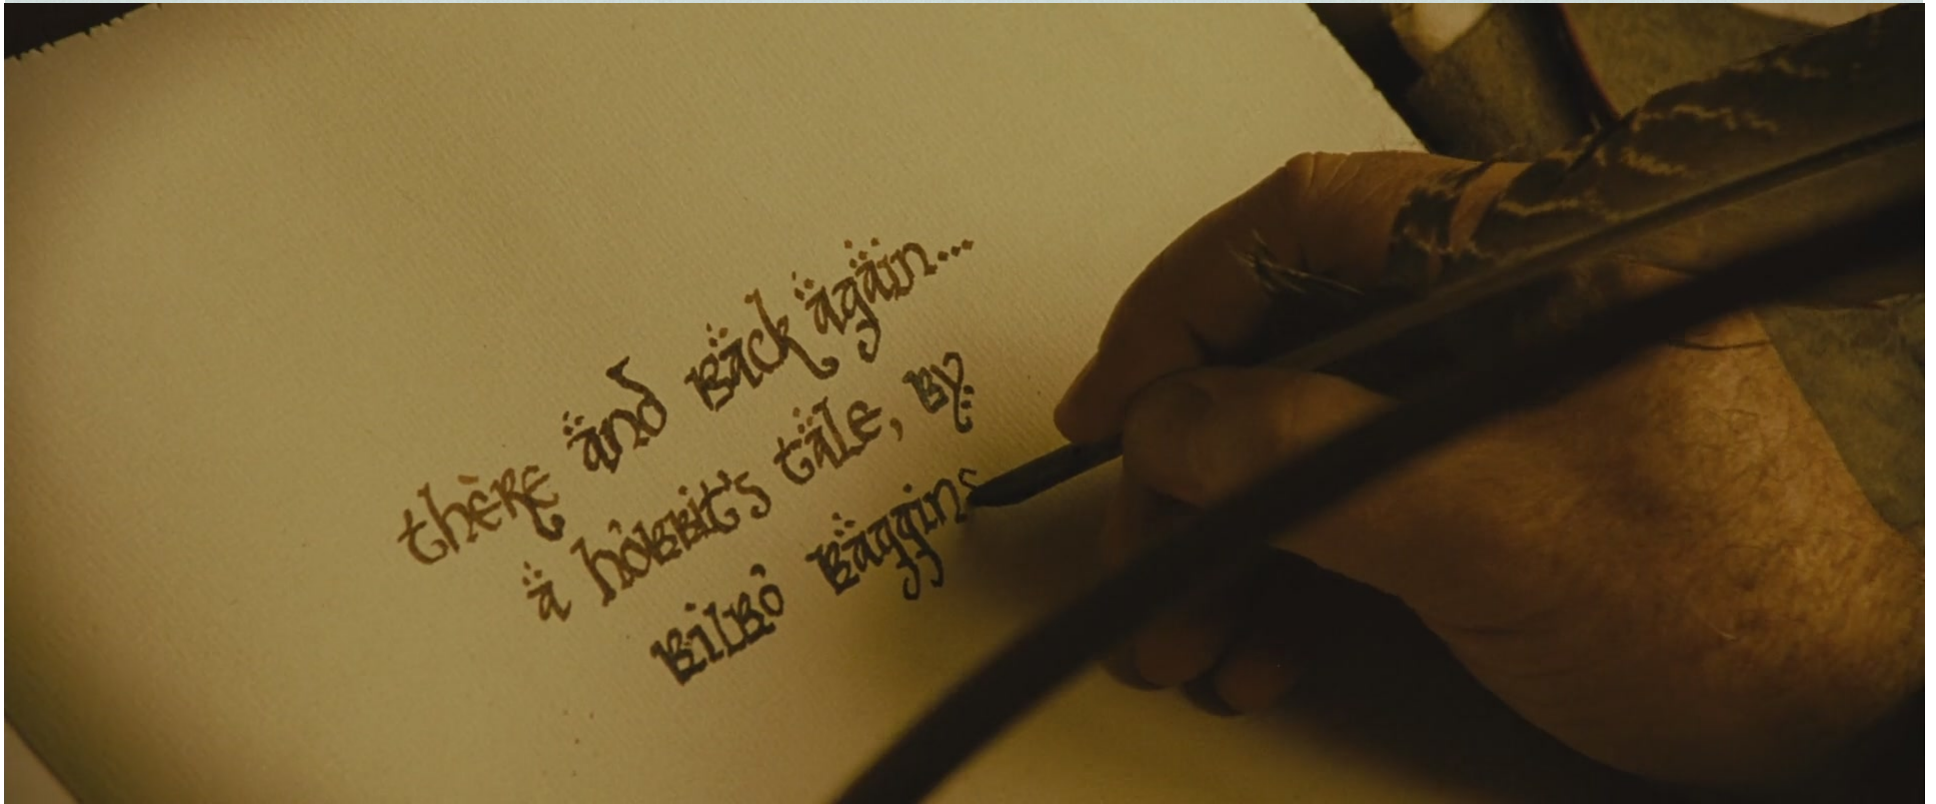 thère and Back again...
a hobbit's tale, By
Bilbo Baggins